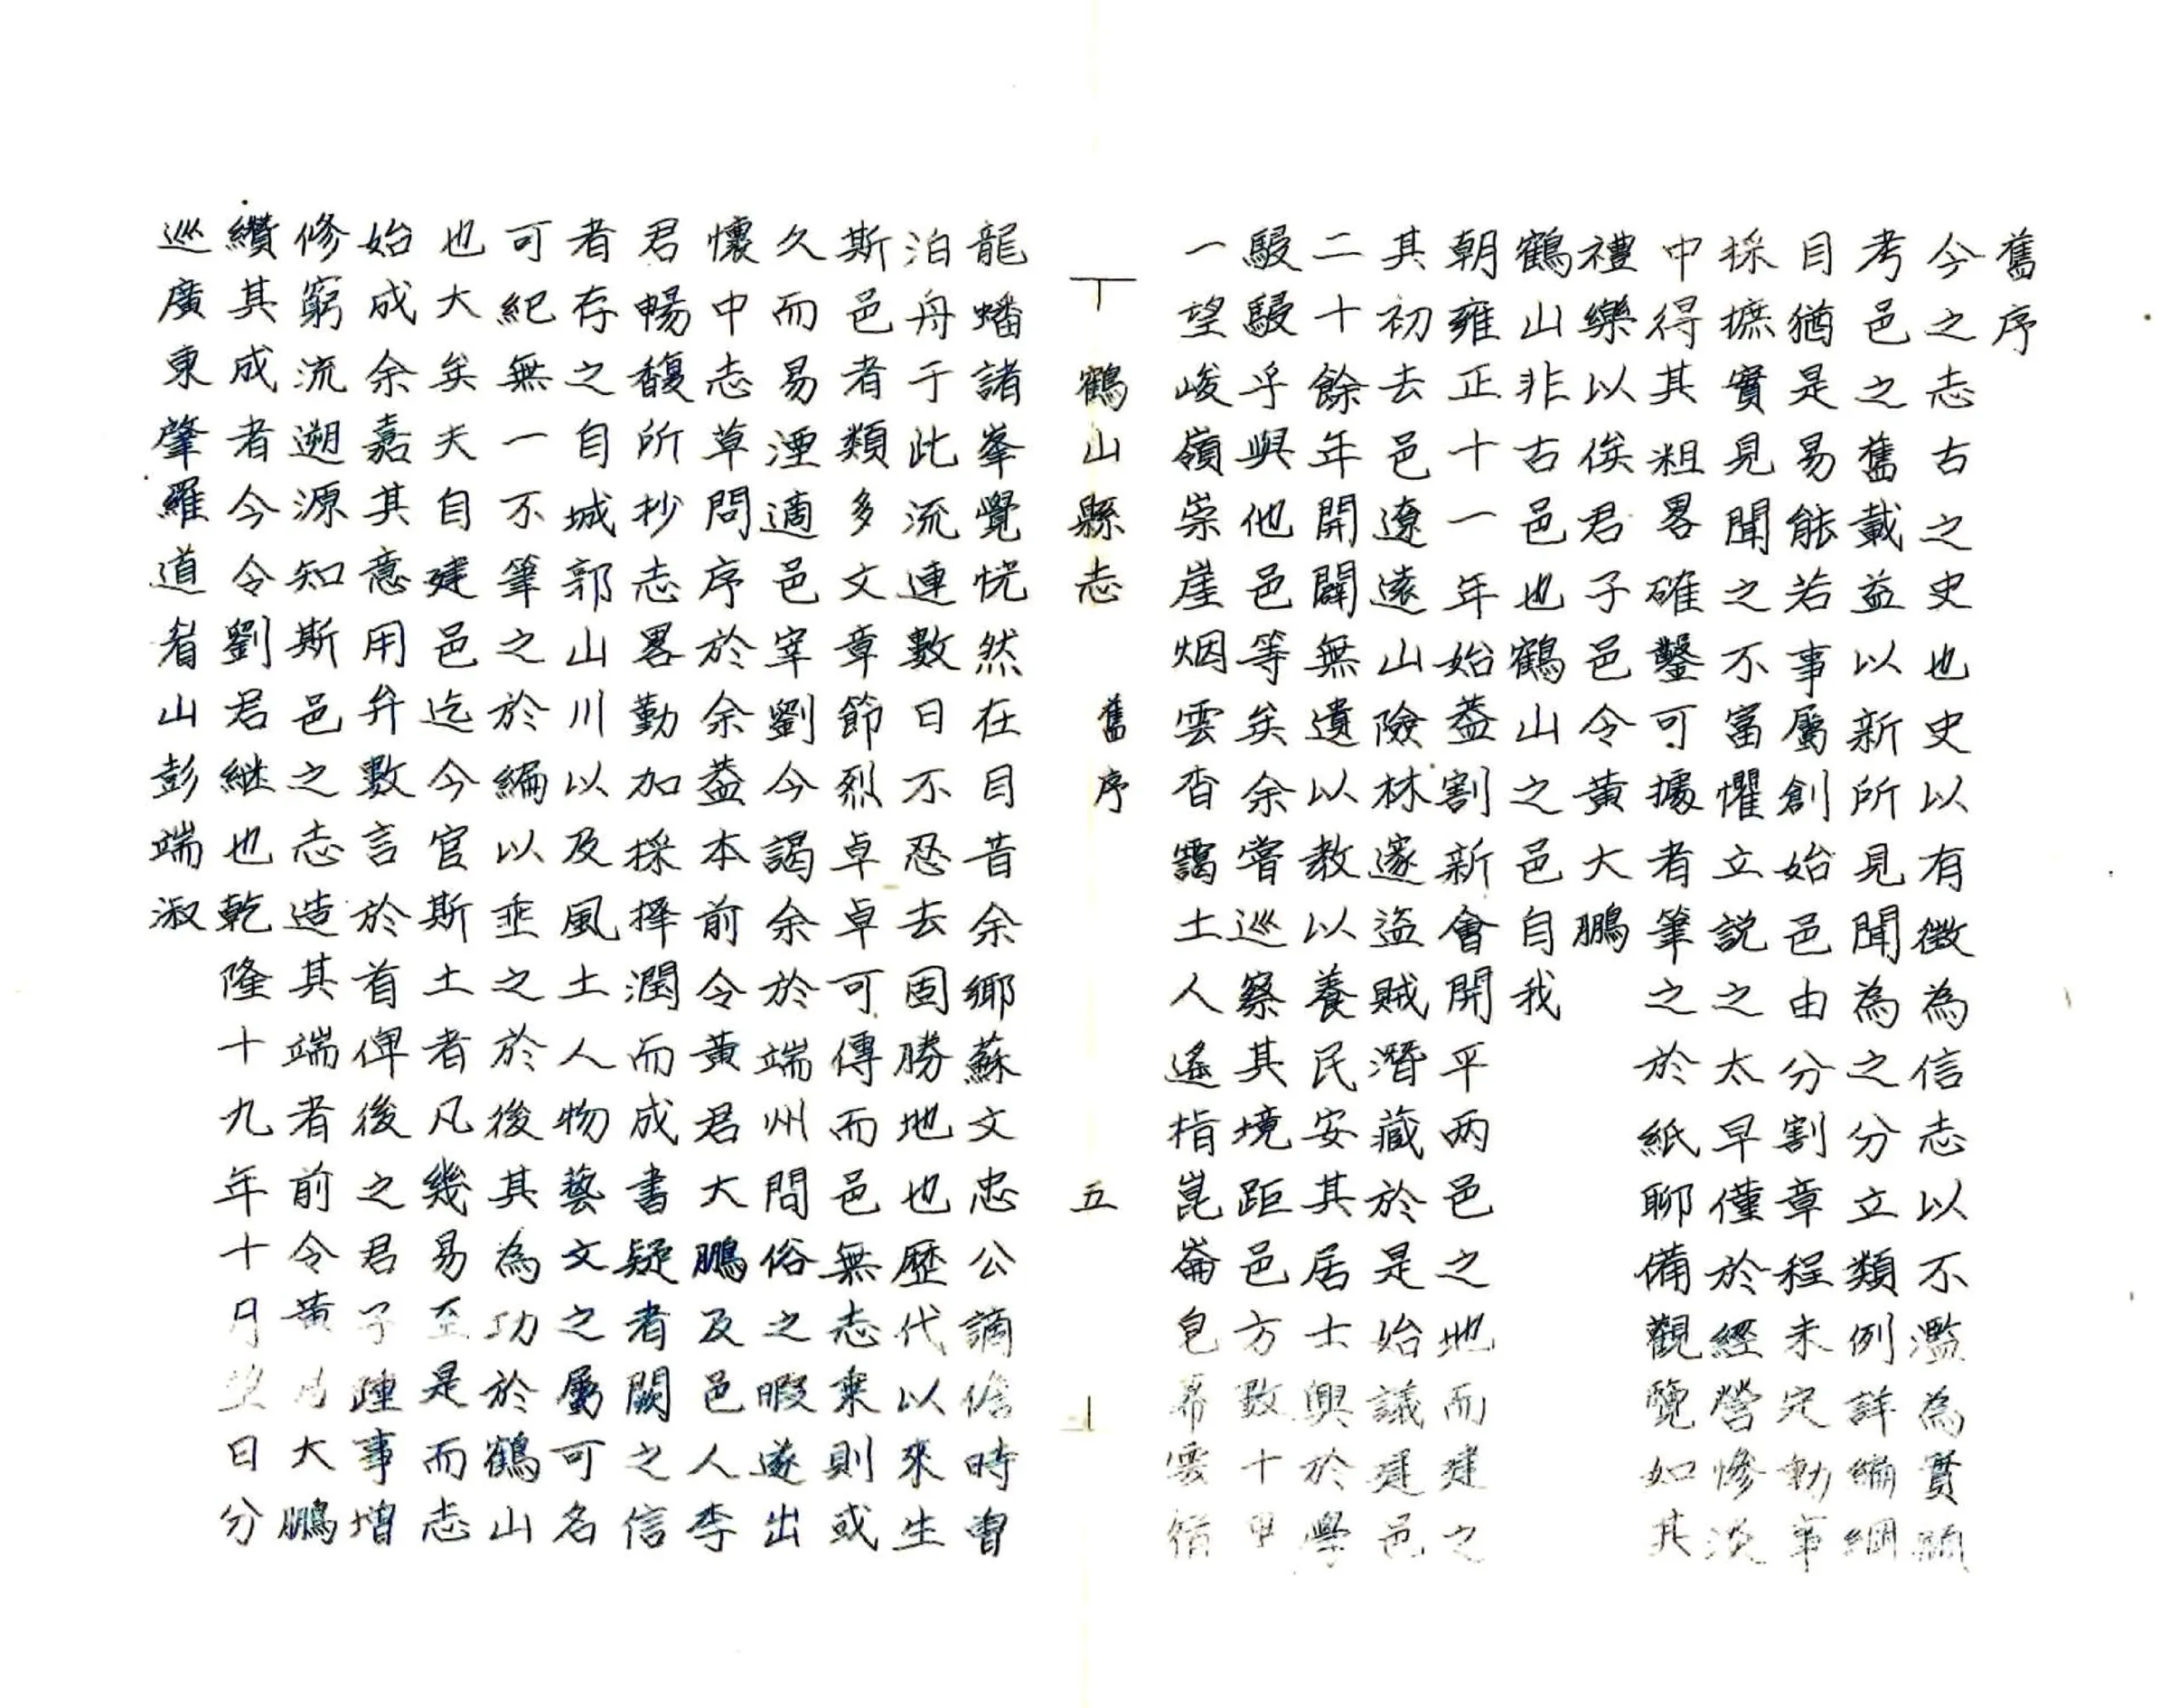 舊序
今之志古之史也史以有徵為信志以不濫為貴顧
考邑之舊載益以新所見聞為之分立類例詳編綱
目猶是易能若事屬創始邑由分割章程未定勒事
採摭實見聞之不富懼立說之太早僅於經營慘淡
中得其粗畧確鑿可據者筆之於紙聊備觀覽如其
禮樂以俟君子邑令黃大鵬
鶴山非古邑也鶴山之邑自我
朝雍正十一年始葢割新會開平两邑之地而建之
其初去邑遼遠山險林邃盜賊潛藏於是始議建邑
二十餘年開闢無遺以教以養民安其居士興於學
駸駸乎與他邑等矣余嘗巡察其境距邑方数十里
一望峻嶺崇崖烟雲杳靄土人遙指崑崙皂幕雲宿
鶴山縣志 舊序 五
龍蟠諸峯覺恍然在目昔余鄉蘇文忠公謫儋時曾
泊舟于此流連數日不忍去固勝地也歷代以來生
斯邑者類多文章節烈卓卓可傳而邑無志乘則或
久而易湮適邑宰劉今謁余於端州問俗之暇遂出
懷中志草問序於余葢本前令黃君大鵬及邑人李
君暢馥所抄志畧勤加採擇潤而成書疑者闕之信
者存之自城郭山川以及風土人物藝文之屬可名
可紀無一不筆之於編以垂之於後其為功於鶴山
也大矣夫自建邑迄今官斯土者凡幾易至是而志
始成余嘉其意用弁數言於首俾後之君子踵事增
修窮流遡源知斯邑之志造其端者前令黃君大鵬
纘其成者今令劉君継也乾隆十九年十月望日分
巡廣東肇羅道眷山彭端淑